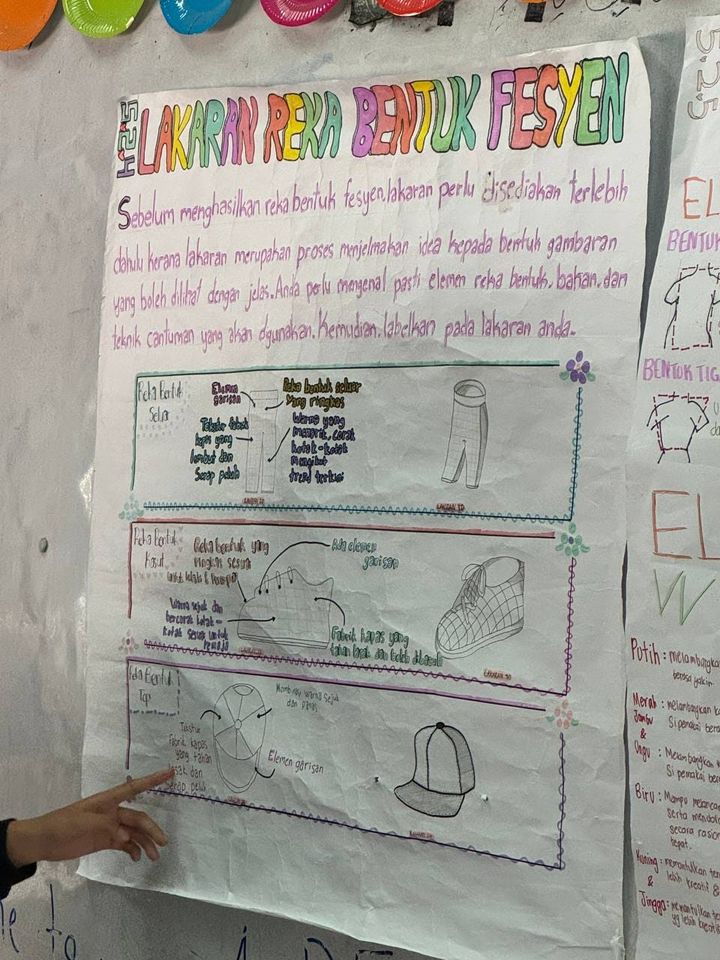 5.2.4
LAKARAN REKA BENTUK FESYEN
Sebelum menghasilkan reka bentuk fesyen, lakaran perlu disediakan terlebih
dahulu kerana lakaran merupakan proses menjelmakan idea kepada bentuk gambaran
yang boleh dilihat dengan jelas. Anda perlu mengenal pasti elemen reka bentuk, bahan, dan
teknik cantuman yang akan dgunakan. Kemudian, labelkan pada lakaran anda.
Reka Bentuk
Seluar
Elemen
garisan
Reka bentuk seluar
yang ringkas
kapas yang
lembut dan
Serap peluh
Warna yang
menarik, corak
kotak-kotak
mengikut
trend terkini
LAKARAN 2D
LAKARAN 3D
Reka Bentuk
Kasut
Reka bentuk yang
ringkas sesuai
Ada elemen
garisan
Warna sejuk dan
bercorak kotak-
kotak sesuai untuk
Fabrik kapas yang
tahan lasak dan boleh dibasuh
LAKARAN 3D
Reka Bentuk
Topi
Mempunyai warna sejuk
dan panas
Tekstur
Fabrik kapas
yang tahan
lasak dan
serap peluh
Elemen garisan
5.2.5
EL
BENTUK
BENTUK TIG
EL
W
Putih : melambangka
Merah : melambangkan k
Jambu Si pemakai bera
&
Ungu : Melambangkan k
Si pemakai ber
Biru : Mampu melanca
serta mendor
secara rasion
tepat.
Kuning : memantulkan ten
& lebih kreatif &
Jingga : memantulkan te
yg lebih kreatif